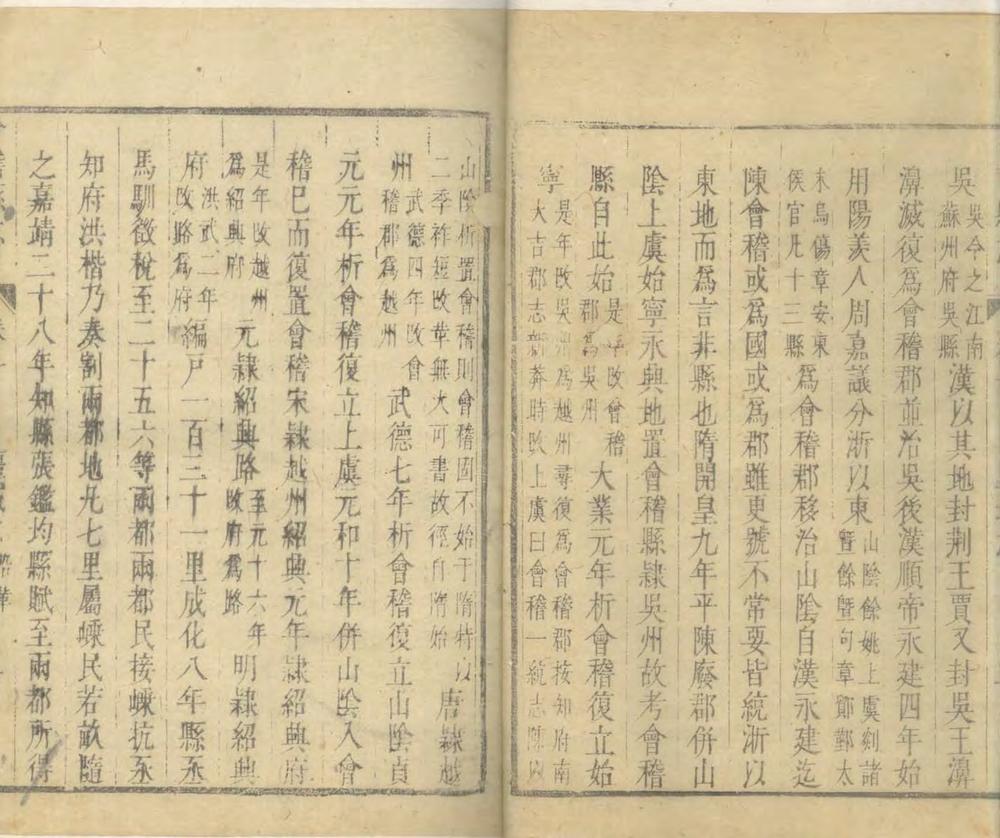 吳吳今之江南蘇州府吳縣漢以其地封荆王賈又封吳王濞
濞滅復爲會稽郡並治吳後漢順帝永建四年始
用陽羨人周嘉議分浙以東山陰餘姚上虞剡諸曁餘曁句章鄞鄮太
末烏傷章安東侯官凡十三縣爲會稽郡移治山陰自漢永建迄
陳會稽或爲國或爲郡雖更號不常要皆統浙以
東地而爲言非縣也隋開皇九年平陳廢郡併山
陰上虞始寧永興地置會稽縣隸吳州故考會稽
縣自此始是年改會稽郡爲吳州大業元年析會稽復立始
寧是年改吳州爲越州尋復爲會稽郡按知府南大吉郡志新莽時改上虞曰會稽一統志陳以
山陰析置會稽則會稽固不始于隋特以二季祚短改革無大可書故徑自隋始唐隸越
州武德四年改會稽郡爲越州武德七年析會稽復立山陰貞
元元年析會稽復立上虞元和十年併山陰入會
稽已而復置會稽宋隸越州紹興元年隸紹興府
是年改越州爲紹興府元隸紹興路至元十六年改府爲路明隸紹興
府洪武二年改路爲府編戸一百三十一里成化八年縣丞
馬馴徵稅至二十五六等兩都兩都民接嵊抗丞
知府洪楷乃奏割兩都地九七里屬嵊民若畝隨
之嘉靖二十八年知縣張鑑均縣賦至兩都所得